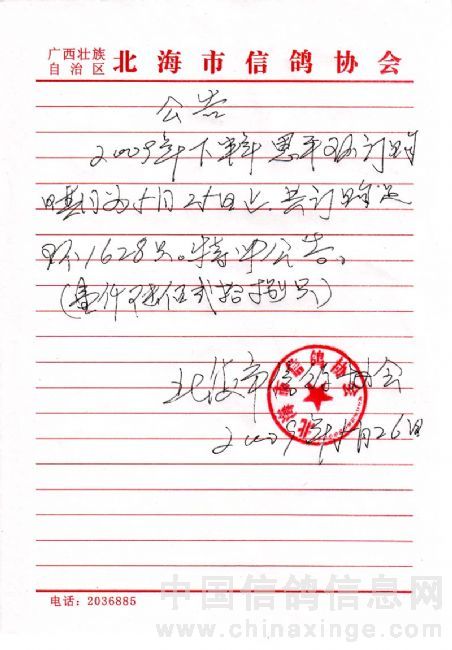 广西壮族
自治区 北海市信鸽协会
公告
2009年下半年恩平环订购
日期为十月25日止.共订购足
环1628只。特此公告。
(壹仟陆佰贰拾捌只)
北海市信鸽协会
2009年十月26日
北海市信鸽协会
电话：2036885
中国信鸽信息网
www.chinaxinge.com